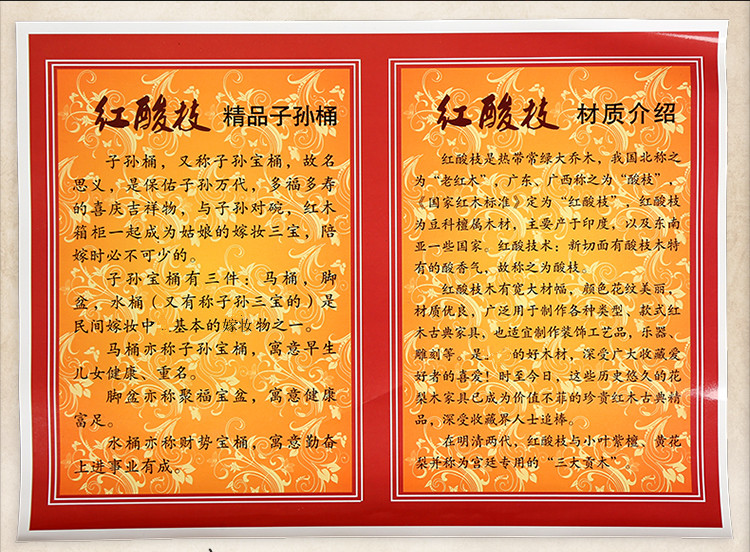 红酸枝 精品子孙桶
子孙桶，又称子孙宝桶，故名
思义，是保佑子孙万代，多福多寿
的喜庆吉祥物，与子孙对碗，红木
箱柜一起成为姑娘的嫁妆三宝，陪
嫁时必不可少的。
子孙宝桶有三件：马桶，脚
盆，水桶（又有称子孙三宝的）是
民间嫁妆中 基本的嫁妆物之一。
马桶亦称子孙宝桶，寓意早生
儿女健康、重名。
脚盆亦称聚福宝盆，寓意健康
富足。
水桶亦称财势宝桶，寓意勤奋
上进事业有成。
红酸枝 材质介绍
红酸枝是热带常绿大乔木，我国北称之
为“老红木”，广东、广西称之为“酸枝”，
《国家红木标准》定为“红酸枝”，红酸枝
为豆科檀属木材，主要产于印度，以及东南
亚一些国家。红酸技木：新切面有酸枝木特
有的酸香气，故称之为酸枝。
红酸枝木有宽大材幅，颜色花纹美丽，
材质优良，广泛用于制作各种类型、款式红
木古典家具，也适宜制作装饰工艺品，乐器、
雕刻等。是 的好木材，深受广大收藏爱
好者的喜爱！时至今日，这些历史悠久的花
梨木家具已成为价值不菲的珍贵红木古典精
品，深受收藏界人士追棒。
在明清两代，红酸枝与小叶紫檀、黄花
梨并称为宫廷专用的“三大贡木”。